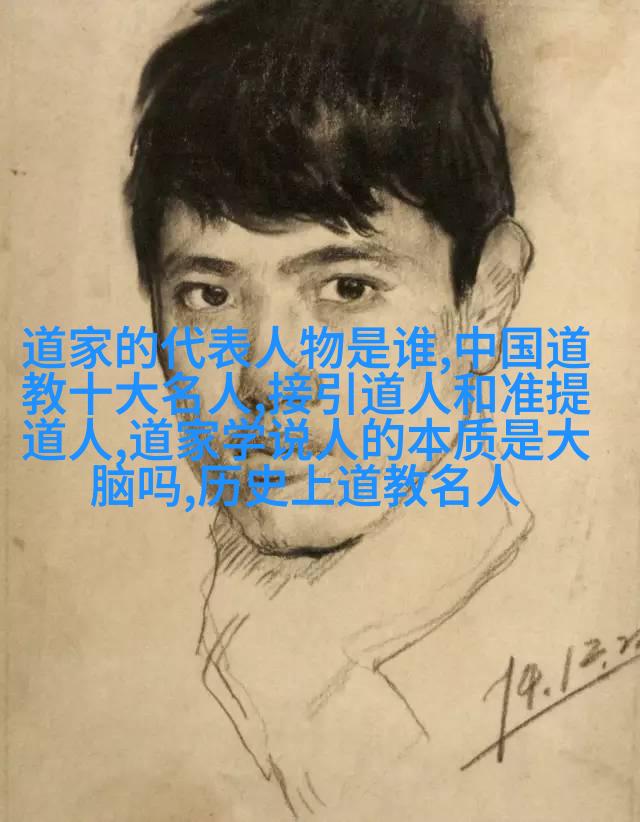 道家的代表人物是谁,中国道
教十大名人,接引道人和准提
道人,道家学说人的本质是大
脑吗,历史上道教名人